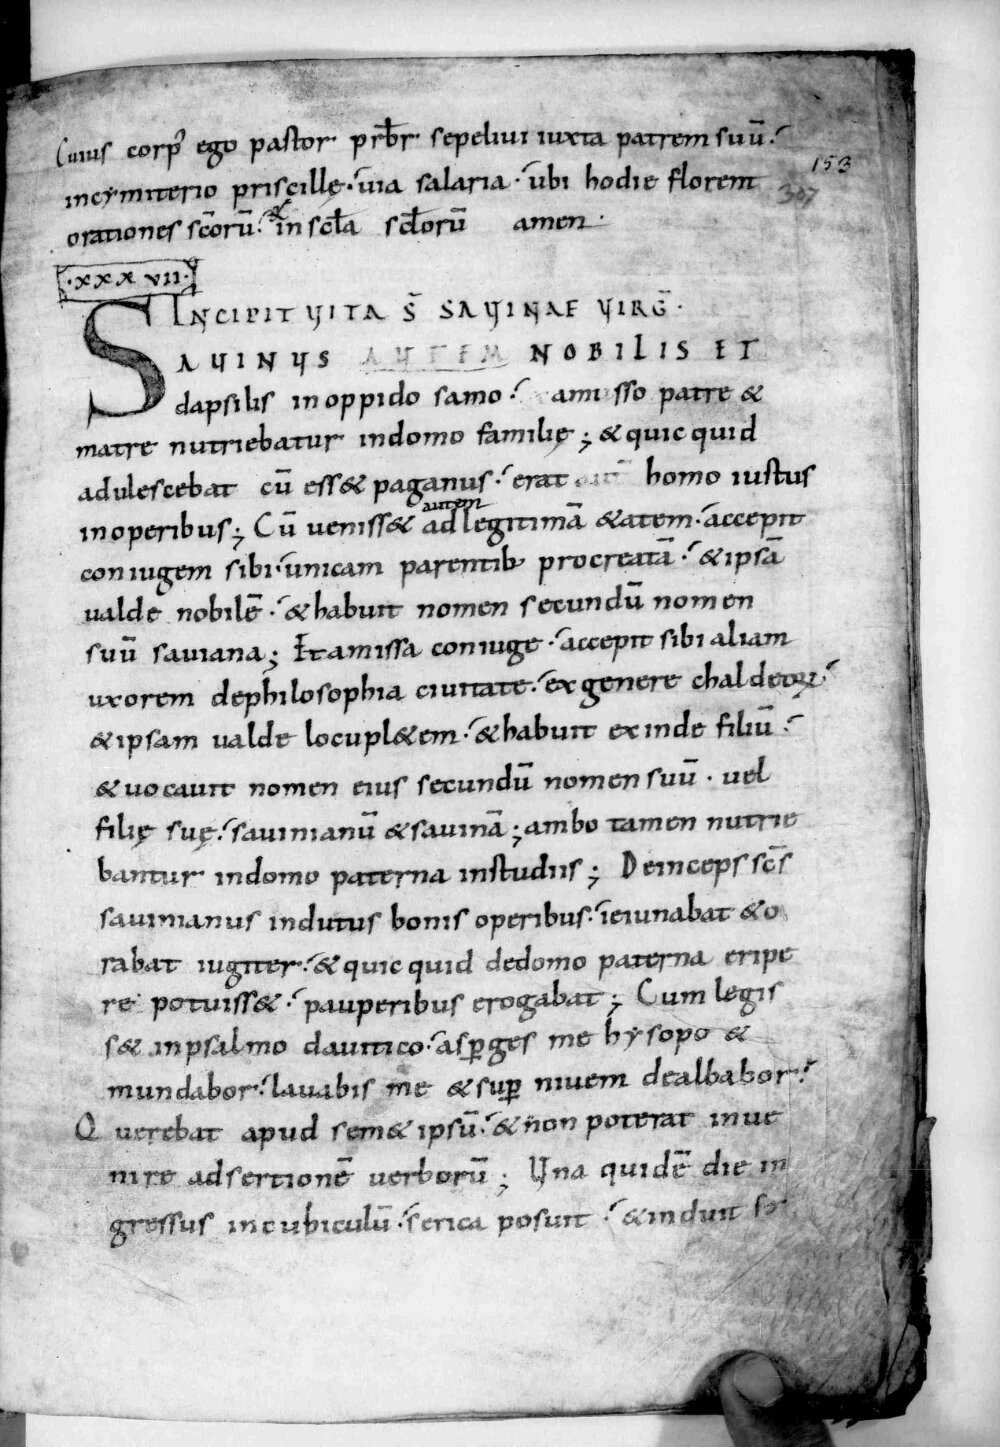 Cuius corp᷒ ego pastor pr̄br sepeliui iuxta patrem suū.
153
incymiterio priscillę. uia salaria. ubi hodie florent
307
orationes sc̄orū. & in scl̄a scl̄orū amen.
·XXXVII·
INCIPIT VITA S̄ SAVINAE VIRḠ.
SAVINVS AVTEM NOBILIS ET
dapsilis in oppido samo. amisso patre &
matre nutriebatur indomo familię; & quicquid
adulescebat cū ess& paganus. erat homo iustus
inoperibus; Cū ueniss& autem ad legitimā &atem. accepit
coniugem sibi. unicam parentib; procreatā. & ipsā
ualde nobilē. & habuit nomen secundū nomen
suū sauiana; Et amissa coniuge. accepit sibi aliam
uxorem dephilosophia ciuitate. ex genere chaldeoꝝ.
& ipsam ualde locupl&em. & habuit exinde filiū.
& uocauit nomen eius secundū nomen suū. uel
filię suę. sauinianū & sauinā; ambo tamen nutrie
bantur indomo paterna instudiis; Deinceps sc̄s
sauinianus indutus bonis operibus. ieiunabat & o
rabat iugiter. & quicquid dedomo paterna eripe
re potuiss&. pauperibus erogabat; Cum legis
s& inpsalmo dauitico. asꝑges me hysopo &
mundabor. lauabis me & suꝑ niuem dealbabor.
Querebat apud sem& ipsū. & non poterat inue
nire adsertionē uerborū; Una quidē die in
gressus incubiculū. serica posuit. & induit